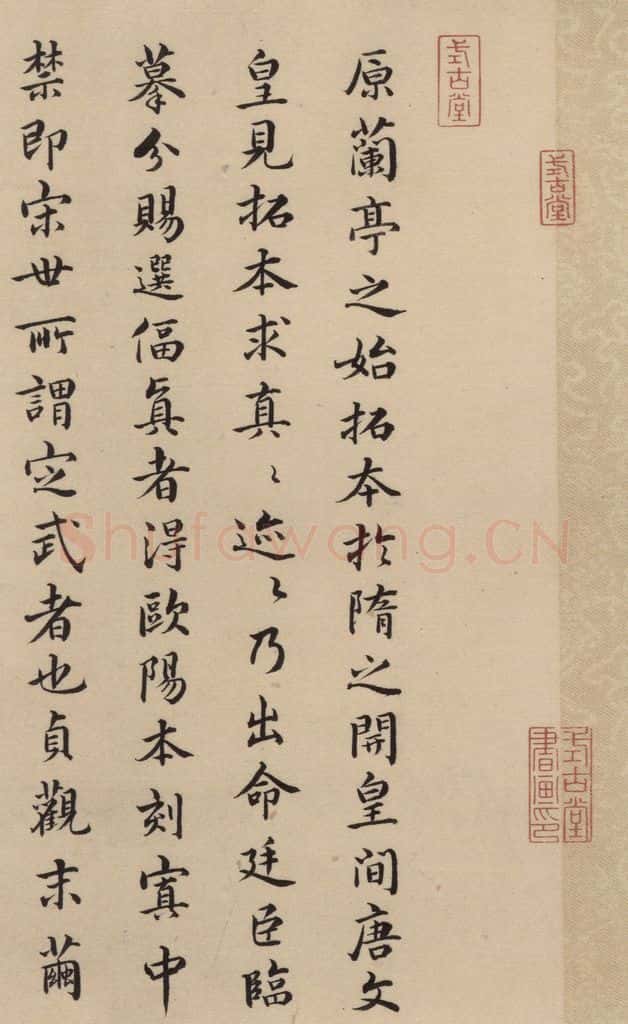 原蘭亭之始拓本於隋之開皇間唐文
皇見拓本求真〻迹〻乃出命廷臣臨
摹分賜選偪真者得歐陽本刻寘中
禁即宋世所謂定武者也貞觀末繭
式古堂
式古堂
式古堂
書畫印
Shufawang.CN